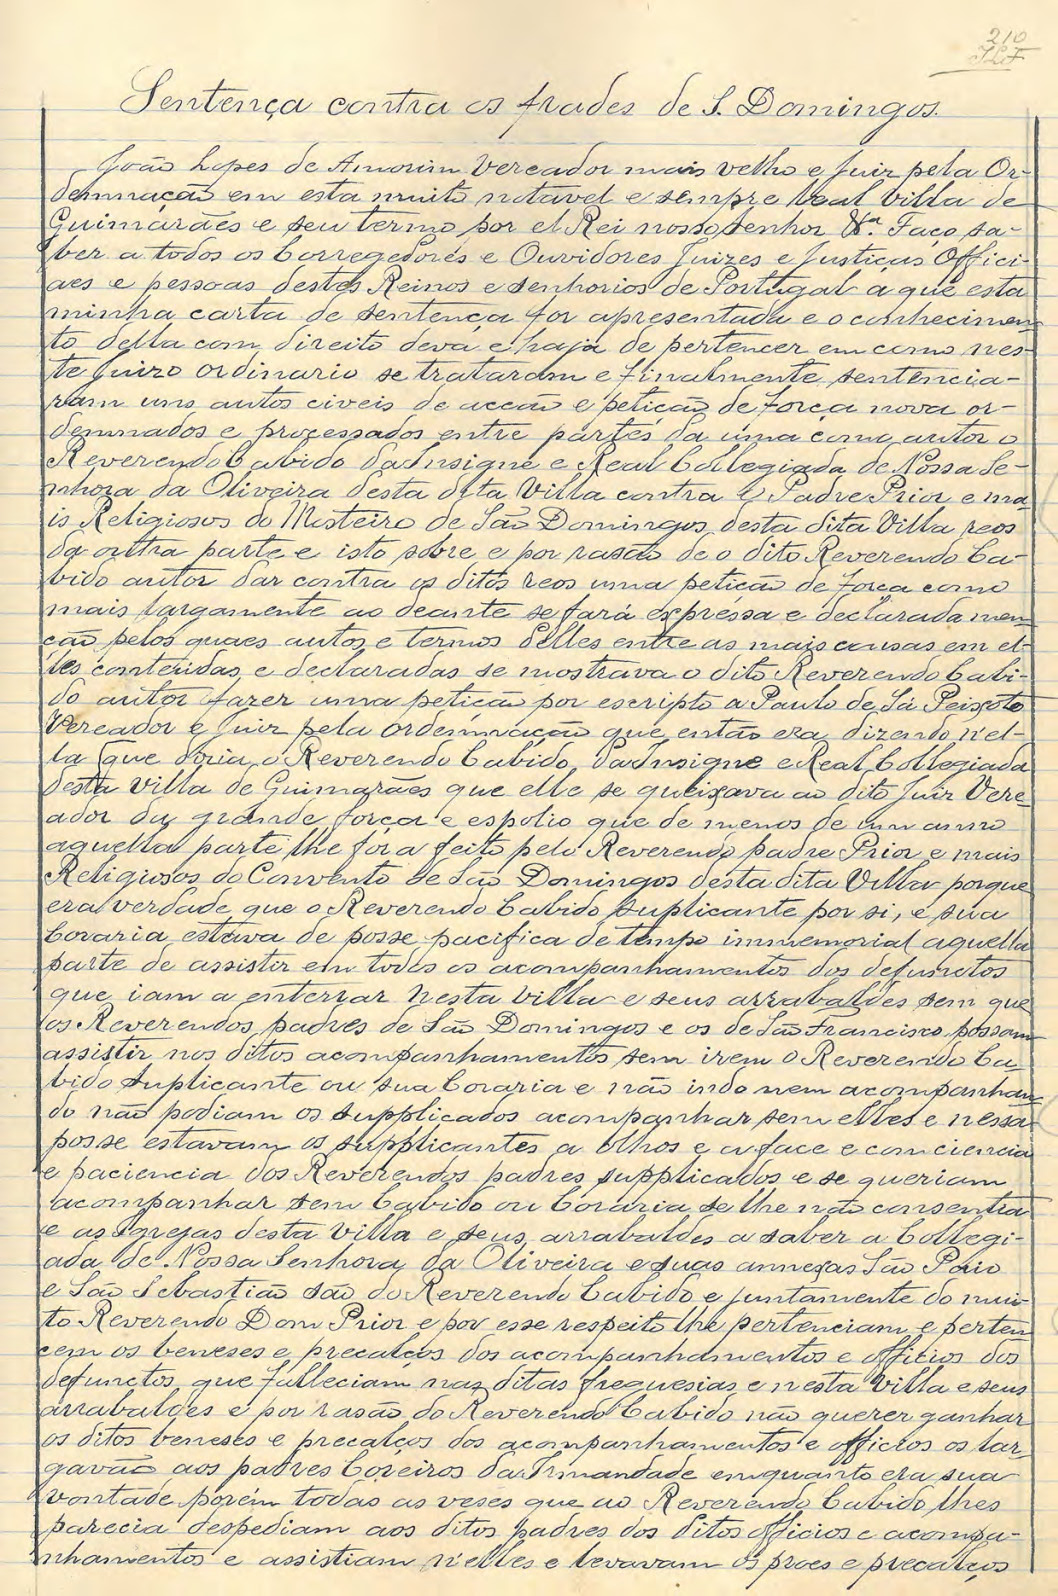 210
Sentença contra os frades de S. Domingos.
João Lopes de Amorim Vereador mais velho e Juiz pela Or-
denação em esta muito notavel e sempre leal Villa de
Guimarães e seu termo por el Rei nosso senhor &ª. Faço sa-
ber a todos os Corregedores e Ouvidores Juizes e Justiças Offici-
aes e pessoas destes Reinos e senhorios de Portugal a que esta
minha carta de sentença for apresentada e o conhecimen-
to della com direito deva e haja de pertencer em como nes-
te Juizo ordinario se trataram e finalmente sentencia-
ram uns autos civeis de acção e petição de força nova or-
denados e processados entre partes da uma como autor o
Reverendo Cabido da Insigne e Real Collegiada de Nossa Se-
nhora da Oliveira desta dita Villa contra o Padre Prior e ma-
is Religiosos do Mosteiro de São Domingos desta dita Villa reos
da outra parte e isto sobre e por rasão de o dito Reverendo Ca-
bido autor dar contra os ditos reos uma petição de força como
mais largamente ao deante se fará expressa e declarada men-
ção pelos quaes autos e termos delles entre as mais causas em el-
les conteudas e declaradas se mostrava o dito Reverendo Cabi-
do autor fazer uma petição por escripto a Paulo de Sá Peixoto
Vereador e Juiz pela ordenação que então era dizendo n'el-
la que dizia o Reverendo Cabido da Insigne e Real Collegiada
desta Villa de Guimarães que elle se queixava ao dito Juiz Vere-
ador da grande força e espolio que de menos de um anno
aquella parte lhe fora feito pelo Reverendo padre Prior e mais
Religiosos do Convento de São Domingos desta dita Villa porque
era verdade que o Reverendo Cabido suplicante por si, e sua
Coraria estava de posse pacifica de tempo immemorial aquella
parte de assistir em todos os acompanhamentos dos defunctos
que iam a enterrar nesta Villa e seus arrabaldes sem que
os Reverendos padres de São Domingos e os de São Francisco possam
assistir nos ditos acompanhamentos sem irem o Reverendo Ca-
bido suplicante ou sua Coraria e não indo nem acompanhan-
do não podiam os supplicados acompanhar sem elles e nessa
posse estavam os supplicantes a olhos e a face e com ciencia
e paciencia dos Reverendos padres supplicados e se queriam
acompanhar sem Cabido ou Coraria se lhe não consentia
e as Igrejas desta Villa e seus arrabaldes a saber a Collegi-
ada de Nossa Senhora da Oliveira e suas annexas São Paio
e São Sebastião são do Reverendo Cabido e juntamente do mui-
to Reverendo Dom Prior e por esse respeito lhe pertenciam e perten-
cem os beneses e precalços dos acompanhamentos e officios dos
defunctos que falleciam nas ditas freguesias e nesta Villa e seus
arrabaldes e por rasão do Reverendo Cabido não querer ganhar
os ditos beneses e precalços dos acompanhamentos e officios os lar-
gavão aos padres Coreiros da Irmandade emquanto era sua
vontade porém todas as veses que ao Reverendo Cabido lhes
parecia despediam aos ditos padres dos ditos officios e acompa-
nhamentos e assistiam n'elles e levavam os proes e precalços